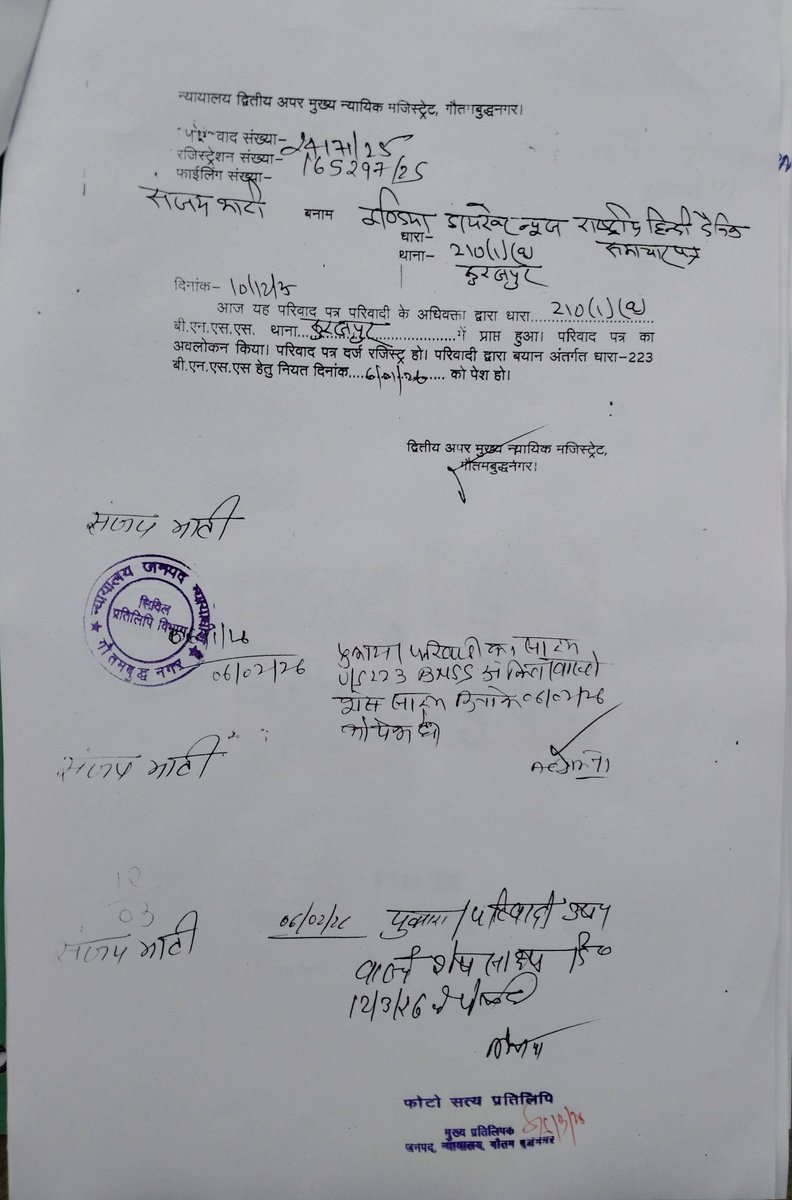 न्यायालय द्वितीय अपर मुख्य न्यायिक मजिस्ट्रेट, गौतमबुद्धनगर।
वाद संख्या- 2471/25
रजिस्ट्रेशन संख्या-
फाईलिंग संख्या- 165297/25
संजय भाटी बनाम इण्डिया न्यूज राष्ट्रीय हिन्दी दैनिक
समाचार पत्र
धारा- 210(1)(a)
थाना- सूरजपुर
दिनांक- 10/12/25
आज यह परिवाद पत्र परिवादी के अधिवक्ता द्वारा धारा 210(1)(a)
बी.एन.एस.एस. थाना सूरजपुर में प्राप्त हुआ। परिवाद पत्र का
अवलोकन किया। परिवाद पत्र दर्ज रजिस्ट्र हो। परिवादी द्वारा बयान अंतर्गत धारा-223
बी.एन.एस.एस हेतु नियत दिनांक....6/01/26.... को पेश हो।
द्वितीय अपर मुख्य न्यायिक मजिस्ट्रेट,
गौतमबुद्धनगर।
संजय भाटी
न्यायालय जनपद न्यायाधीश
सिविल
प्रतिलिपि विभाग
गौतमबुद्ध नगर
06/02/26
पुकारा। परिवादी का साक्ष्य
U/S 223 BNSS अंकित। वास्ते
शेष साक्ष्य दिनांक 06/02/26
को पेश हो
संजय भाटी
12
03
संजय भाटी
06/02/26 पुकारा। परिवादी
वास्ते शेष साक्ष्य दि०
12/3/26
फोटो सत्य प्रतिलिपि
मुख्य प्रतिलिपक
जनपद न्यायालय, गौतम बुद्धनगर